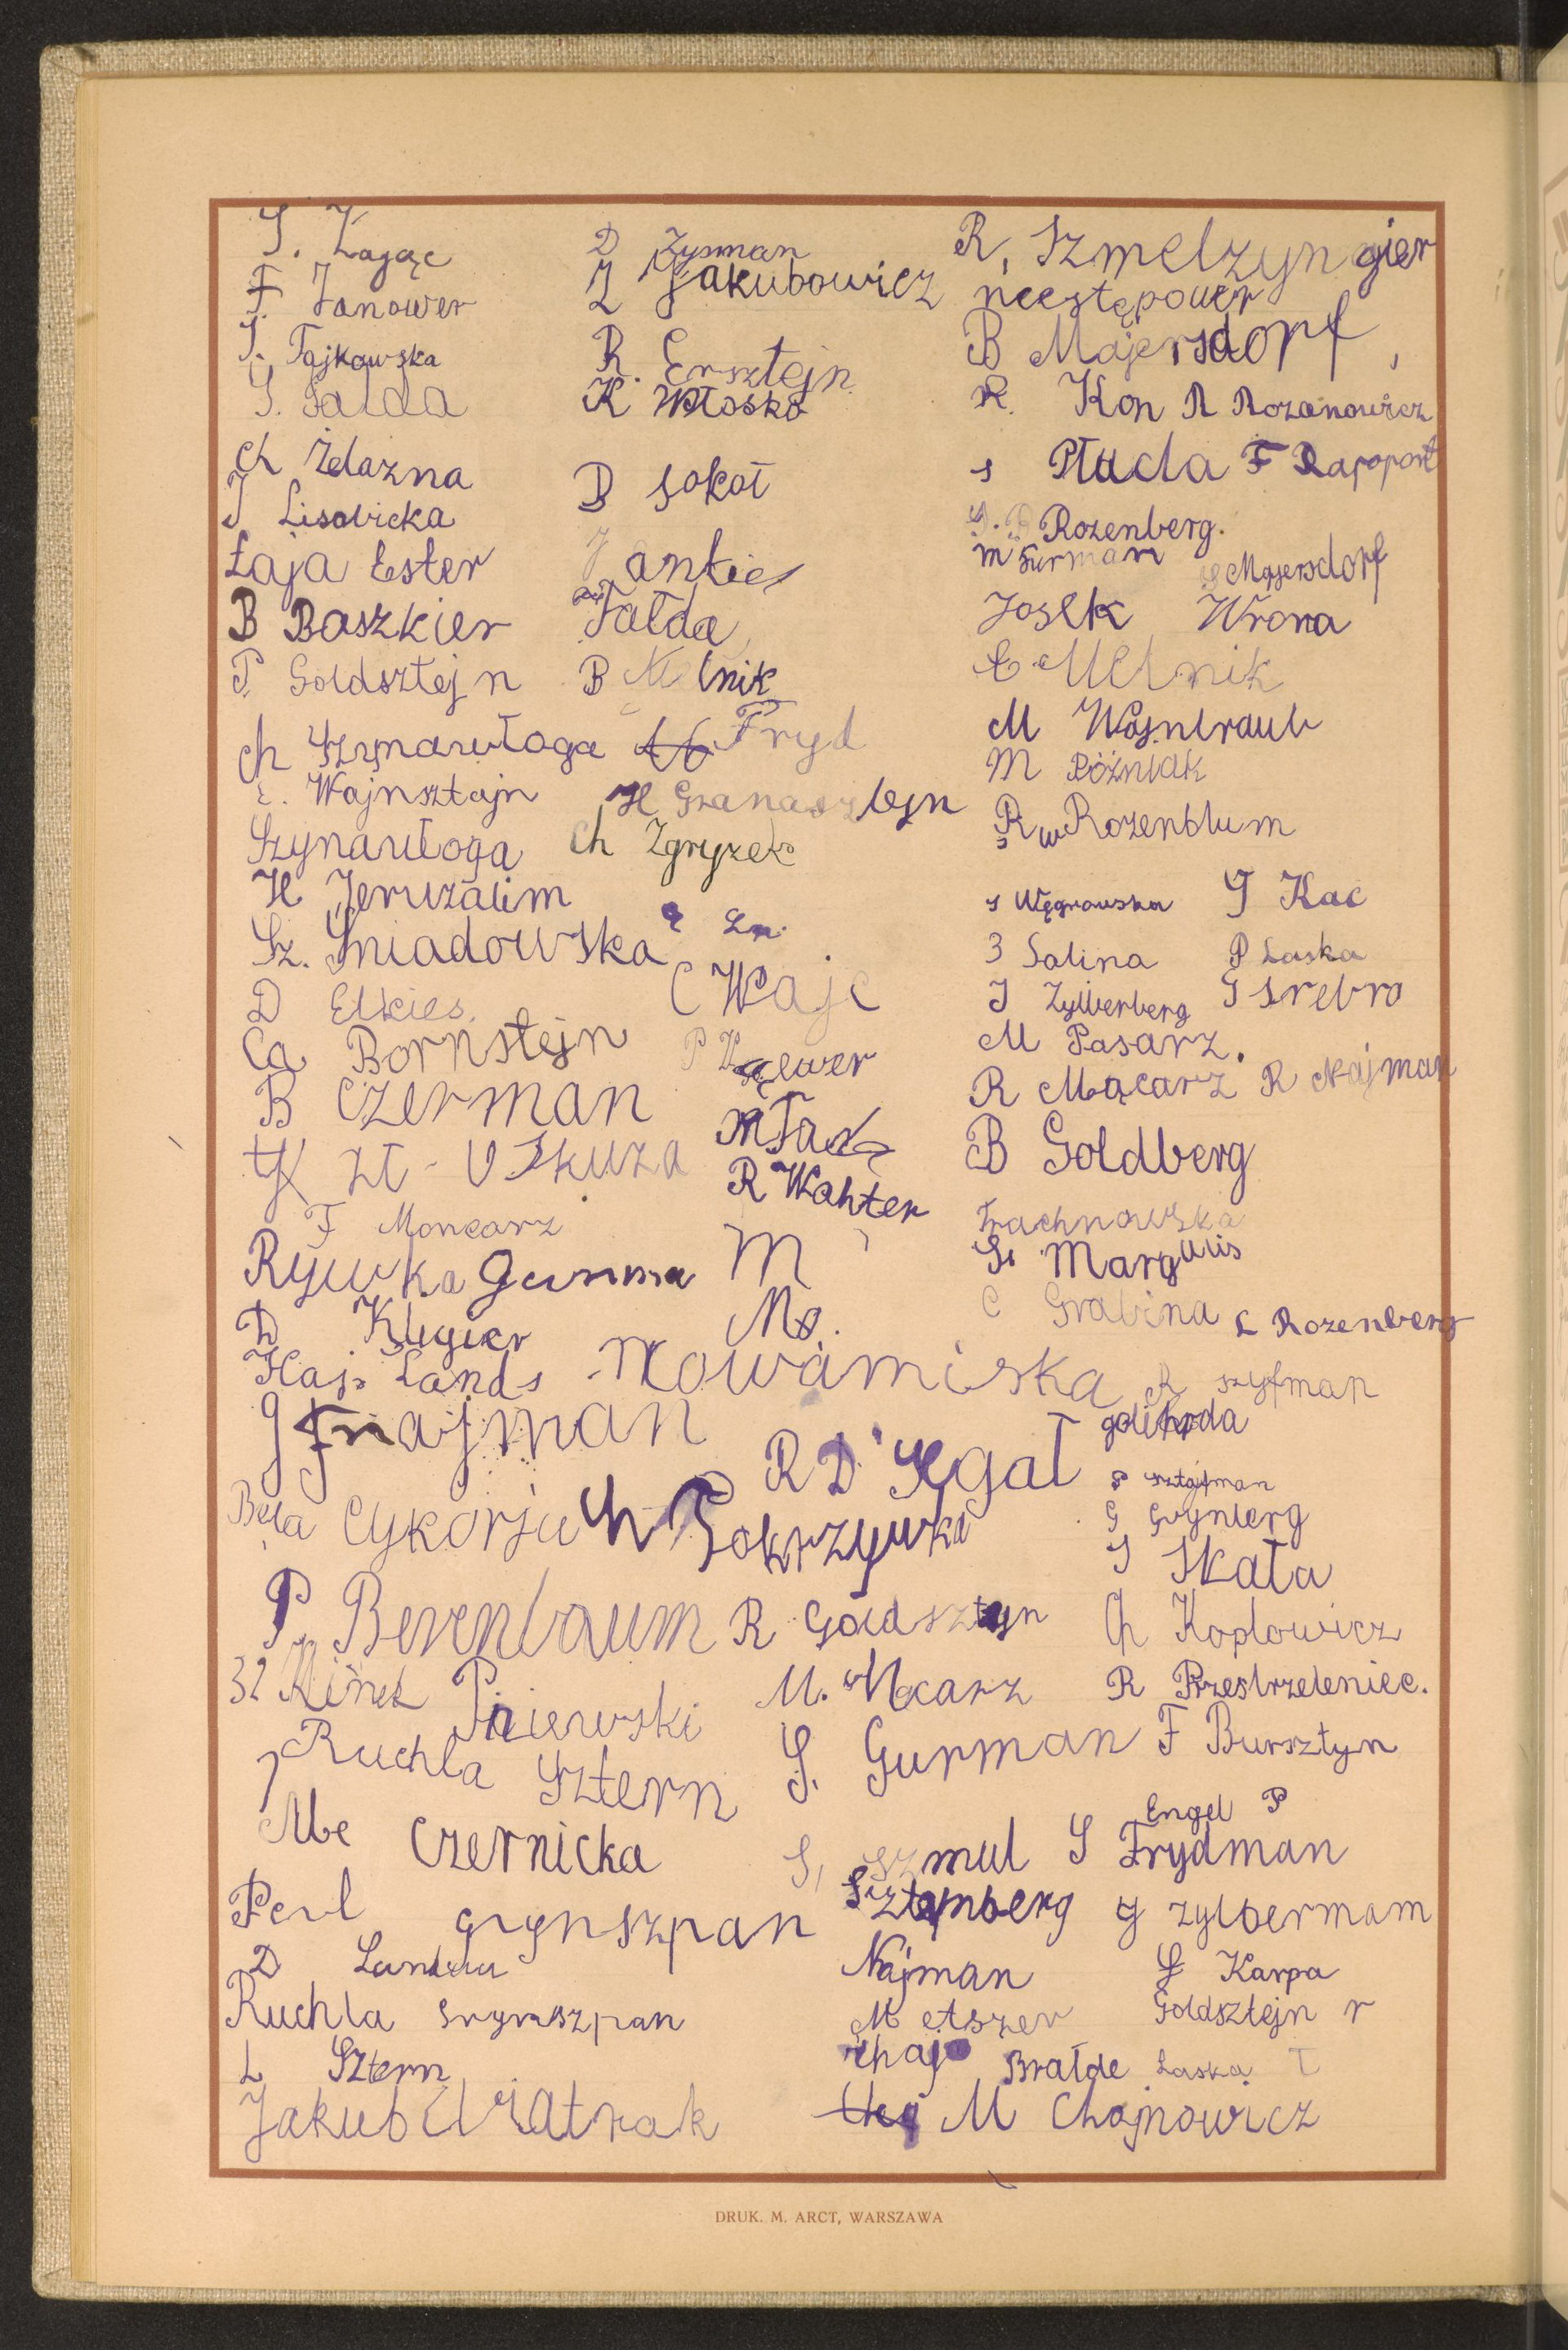 S. Zając
F. Janower
T. Fajkowska
S. Fałda
Ch Żelazna
J Lisobicka
Łaja Ester
B Baszkier
P Goldsztejn
Ch Szymawłoga
E. Wajnsztajn
Szynawłoga
H Jeruzalim
Sz. Śniadowska
D Elkies.
Ca Bornstejn
B Czerman
F Moncarz
Rywka Gurma
D Klygier
Haja Lands
J Fnajman
Bela Cykorja
P Berenbaum
Pniewski
Ruchla Sztern
Czernicka
Perl Grynszpan
D Landau
Ruchla Grynszpan
L Sztern
Jakub Wiatrak
D Zysman
Z Jakubowicz
R. Ersztejn
K Włosko
B Sokoł
Jankiel
Fałda
B Melnik
Fryd
H Granasztejn
Ch Zgryzek
C Wajc
R Wahter
M
Ma.
Nowamiska
R D. Segał
Pokrzywka
R Goldsztejn
M. Mącarz
S. Gurman
S, Szmul
Sztejnberg
Najman
M etszer
Chaja Brałde
M Chojnowicz
R, Szmelzyngier
niestępower
B Majersdorf,
R. Kon R Rozanowicz
s Płuda F Rapoport
S. B Rozenberg.
m Furman S Majersdorf
Josek Wrona
C Melnik
M Wajnbraub
M Późniak
R w Rozenblum
S Węgrowska J Kac
3 Salina P Laska
J Zylberberg J Srebro
M Pasarz.
R Mącarz R Najman
B Goldberg
Frachnowska
S. Margulis
C Grabina L Rozenberg
R Szyfman
P Sztajfman
G Grynberg
S Skała
Ch Koplowicz
R Przestrzeleniec.
F Bursztyn
Engel P
S Frydman
J Zylbermam
S Karpa
Goldsztejn r
Łaska T
DRUK. M. ARCT, WARSZAWA